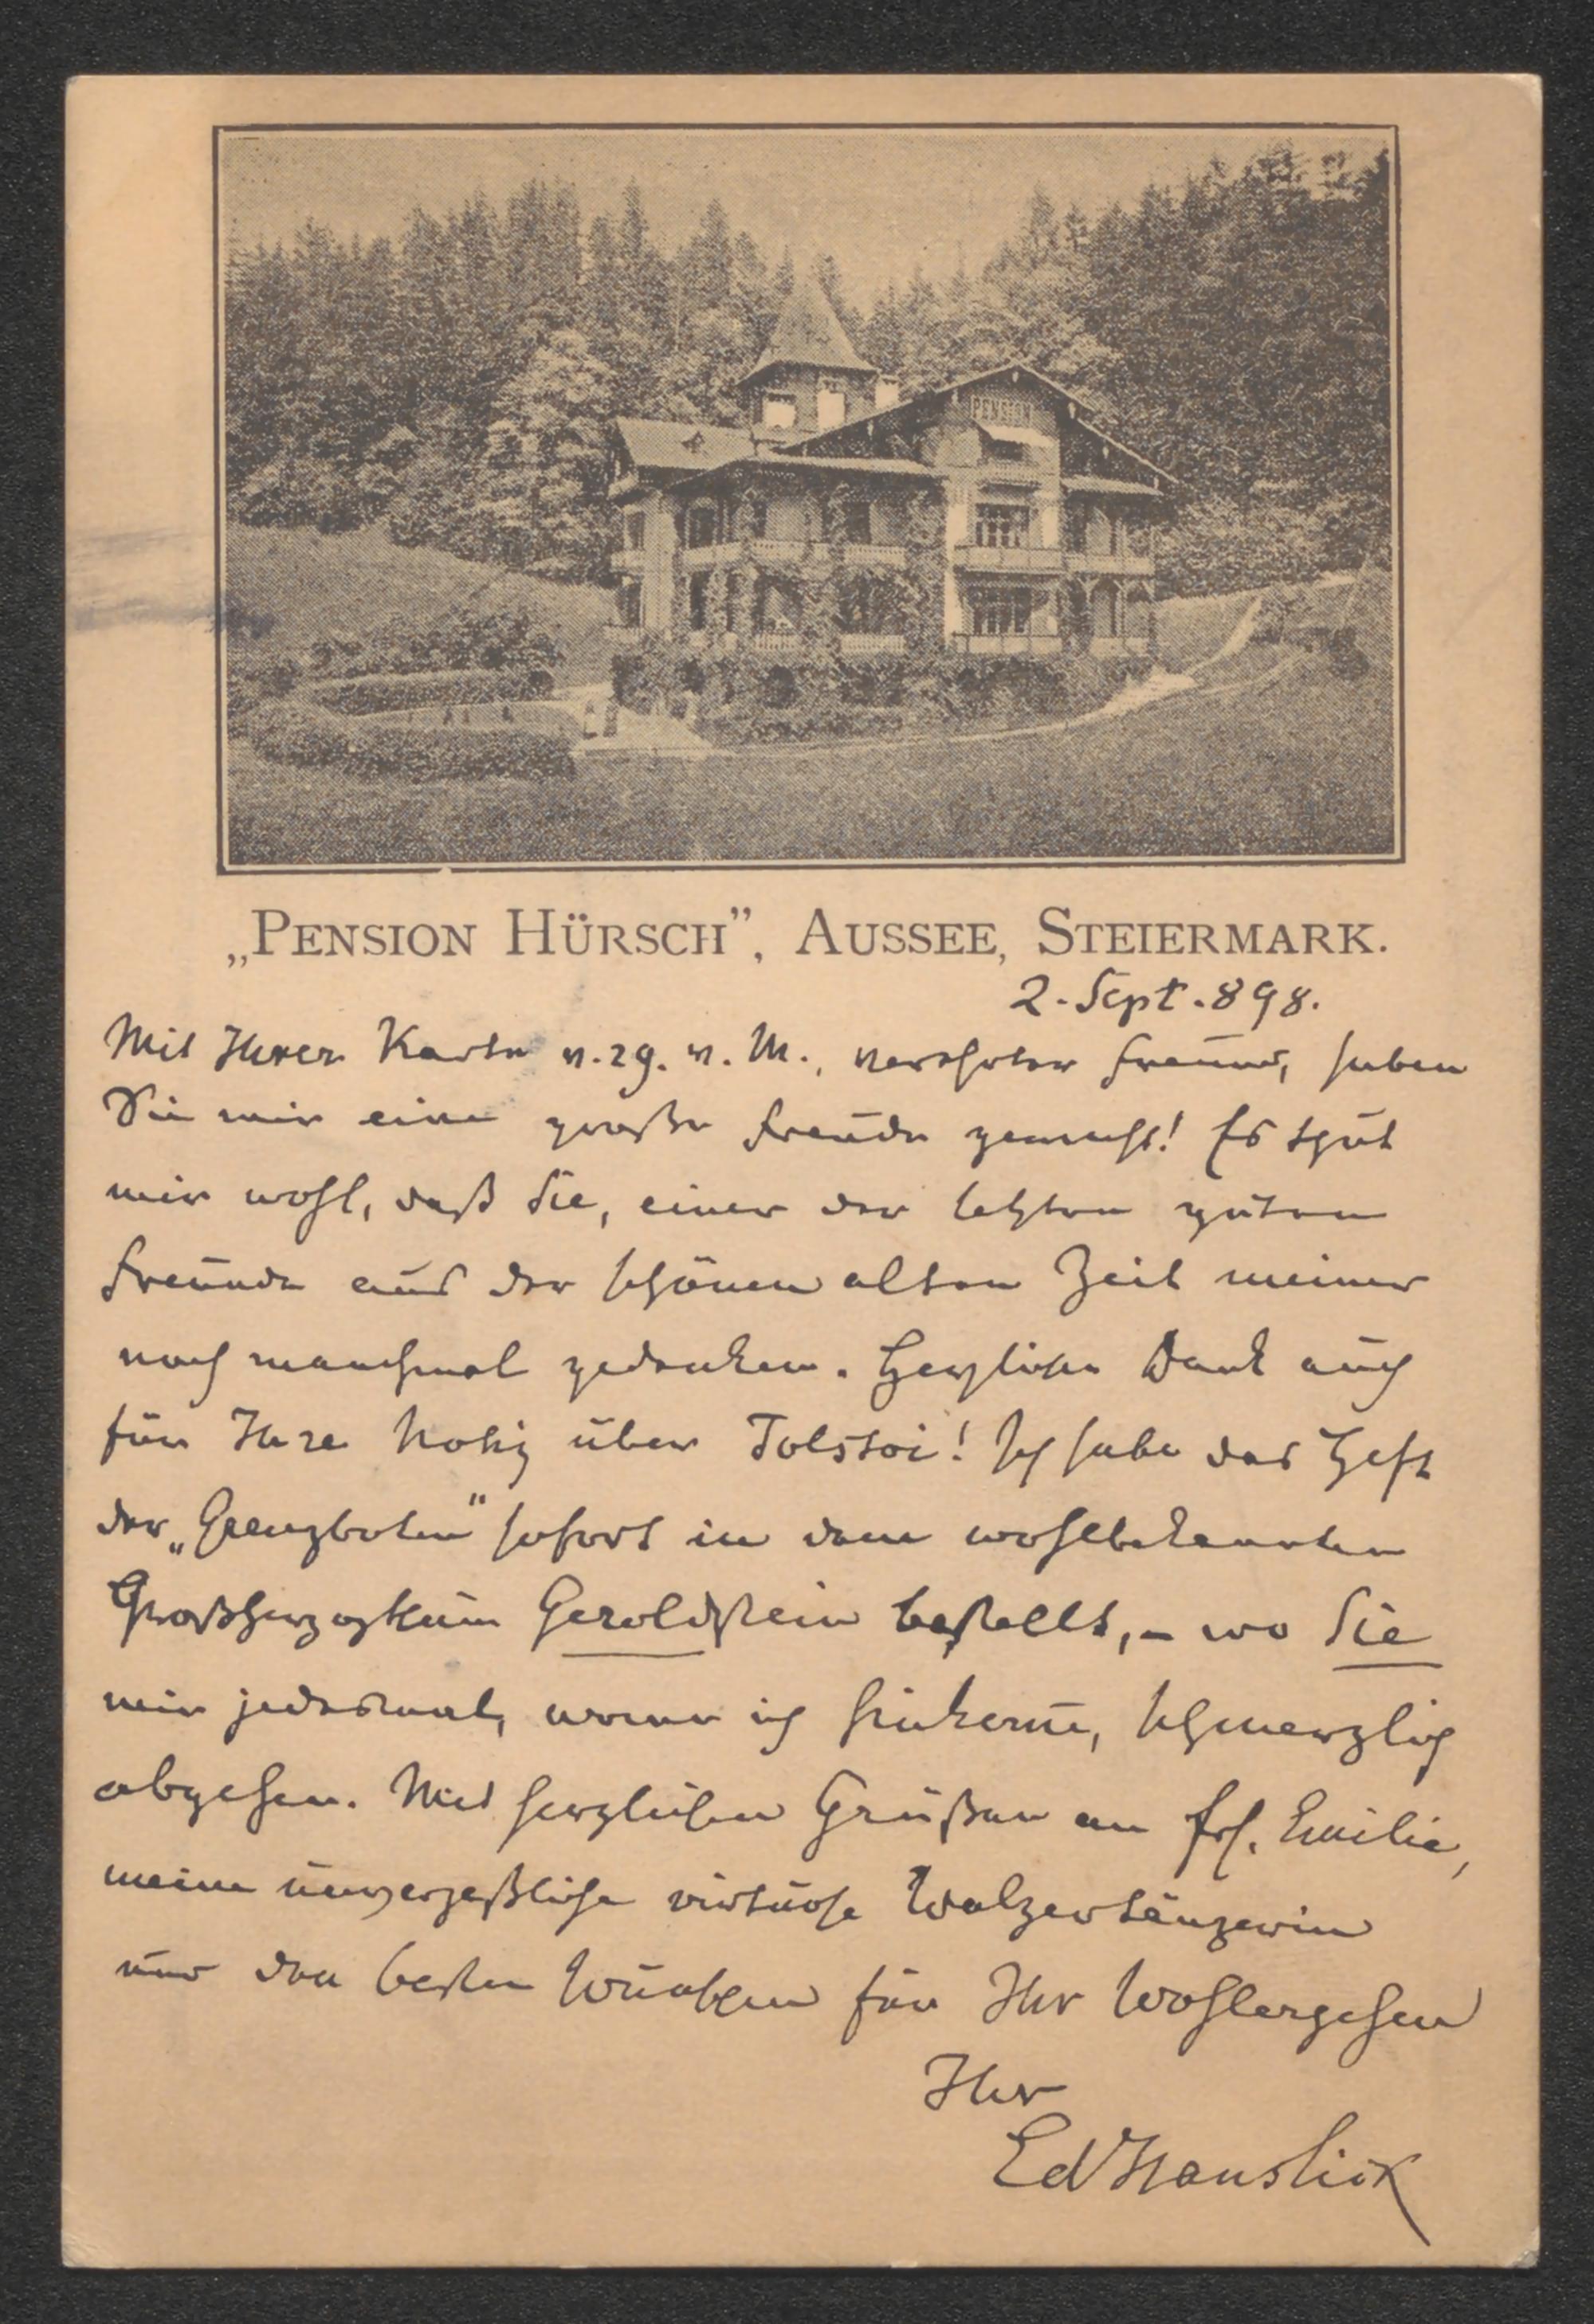 PENSION
„PENSION HÜRSCH”, AUSSEE, STEIERMARK.
2. Sept. 898.
Mit Ihrer Karte v. 29. v. M., verehrter Freund, haben
Sie mir eine große Freude gemacht! Es thut
mir wohl, daß Sie, einer der letzten guten
Freunde aus der schönen alten Zeit meiner
noch manchmal gedenken. Herzlichen Dank auch
für Ihre Notiz über Tolstoi! Ich habe das Heft
der „Grenzboten" sofort in dem wohlbekannten
Großherzogthum Geroldstein bestellt, – wo Sie
mir jedesmal, wenn ich hinkom̅e, schmerzlich
abgehen. Mit herzlichen Grüßen an Frl. Emilie,
meine unvergeßliche virtuose Walzertänzerin
und den besten Wünschen für Ihr Wohlergehen
Ihr
EdHanslick